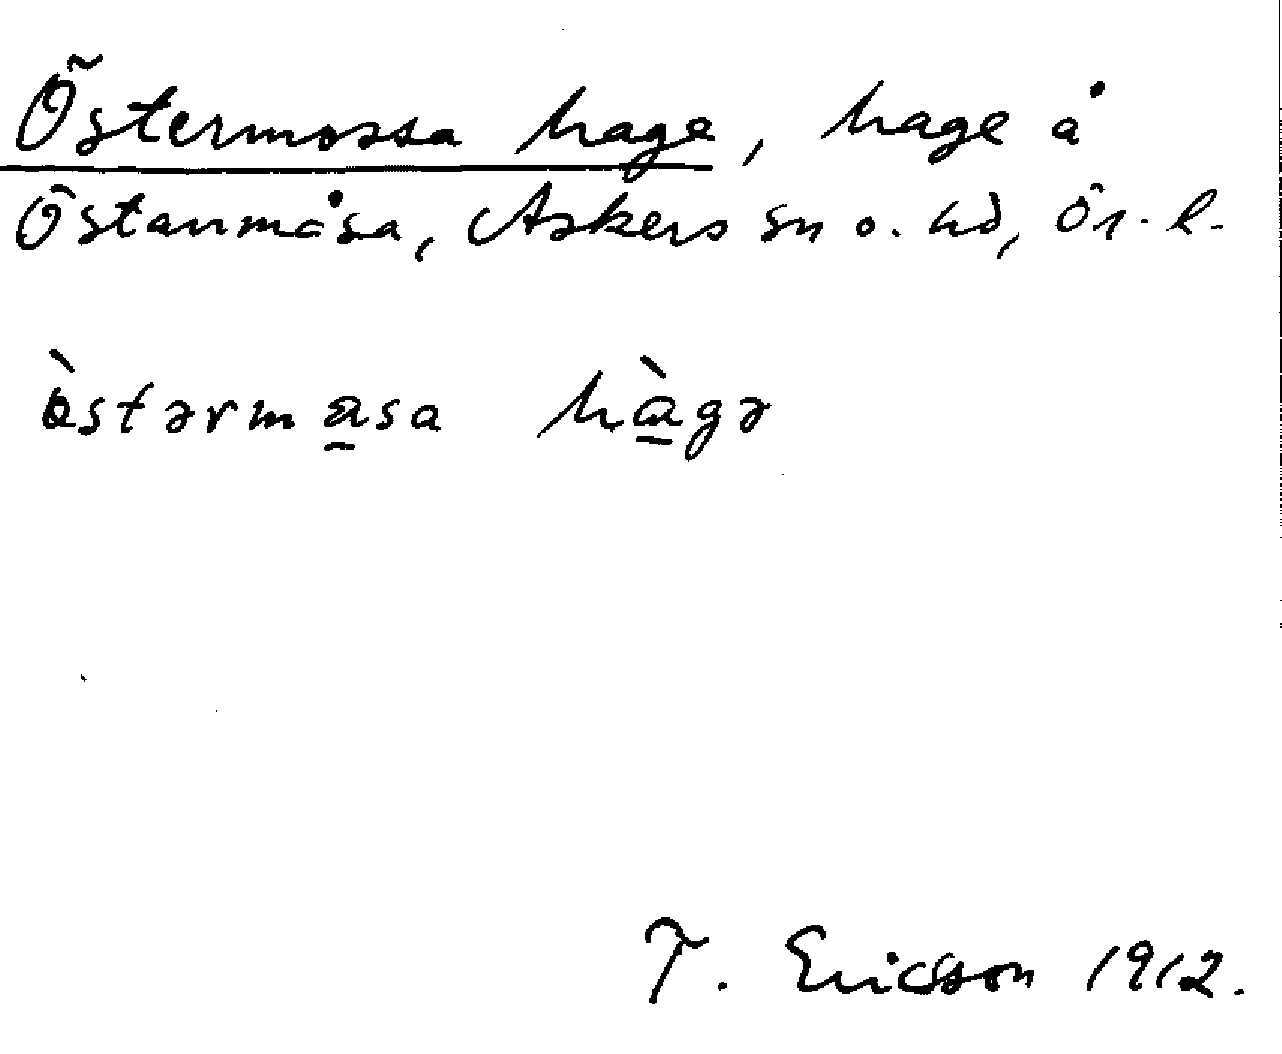 Östermossa hage, hage å
Östanmåsa, Askers sn o. hd, Ör. l.
òstərma̲sa hà̲gə
T. Ericsson 1912.